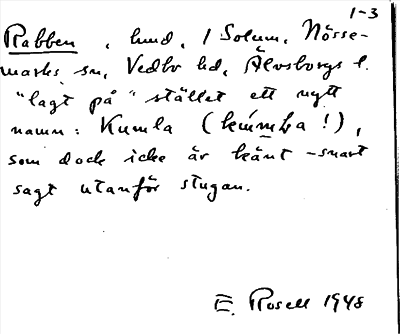 1-3
Rabben, hmd, / Solum, Nösse-
marks sn, Vedbo hd, Älvsborgs l.
"lagt på" stället ett nytt
namn: Kumla (kúmla!),
som dock icke är känt - snart
sagt utanför stugan.
E. Rosell 1948